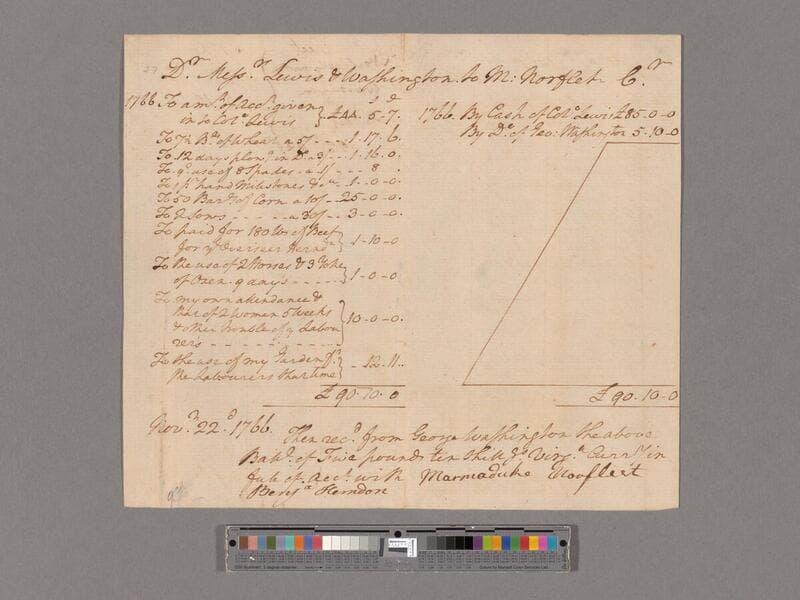 Dr. Messrs. Lewis & Washington to M: Norflet Cr.
s d
1766 To amt. of acct. given
in to Colo. Lewis } £44.. 5- 7.
To 7½ Bs. of Wheat a 5/ - - - 1. 17. 6.
To 12 days plong. in Do. a 3/ - - 1. 16. 0.
To ye. use of 8 Spades - a 1/ - - - 8
To 1 pr. hand Millstones - - 1-0-0
To 50 Barls. of Corn a 10/ - - 25-0-0
To 2 Sows - - - - - a 30/ - - 3-0-0
To paid for 180 Wt. of Beef
for ye. Overseer Hern } 1-10-0
To the use of 2 Horses & 3 Yoke
of Oxen 9 days - - - - } 1-0-0
To my own attendance &
that of 2 women 5 weeks
& other trouble of ye Labou } 10-0-0.
rers - - - - - - - - -
To the use of my Garden fr.
the Labourers that time } - 12. 11..
£ 90. 10. 0
1766. By Cash of Colo. Lewis £85-0-0
By Do. of Geo: Washington 5-10-0
£ 90.. 10-0
Novr. 22d. 1766.
Then recd. from George Washington the above
Balle. of Five pounds ten Shills. Virga. Curry. in
full of Acct. with Marmaduke Norfleet
Herndon